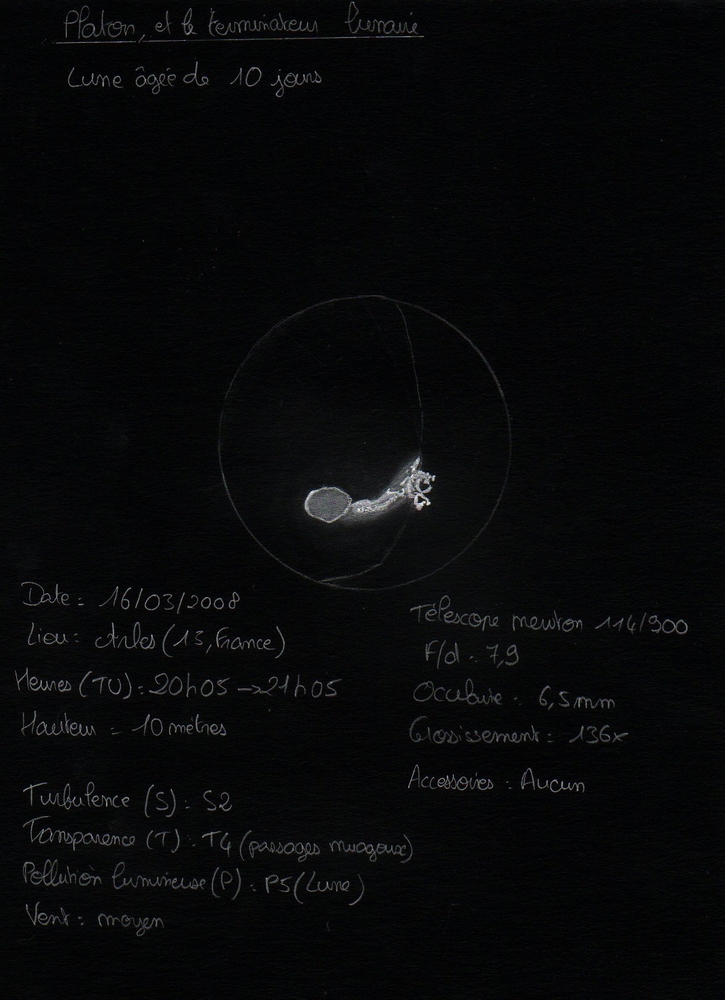 Platon, et le terminateur lunaire
Lune âgée de 10 jours
Date : 16/03/2008
Lieu : Arles (13, France)
Heures (TU) : 20h05 → 21h05
Hauteur = 10 mètres
Turbulence (S) : S2
Transparence (T) : T4 (passages nuageux)
Pollution lumineuse (P) : P5 (Lune)
Vent : moyen
Télescope newton 114/900
F/d : 7,9
Oculaire : 6,5mm
Grossissement : 136x
Accessoires : Aucun